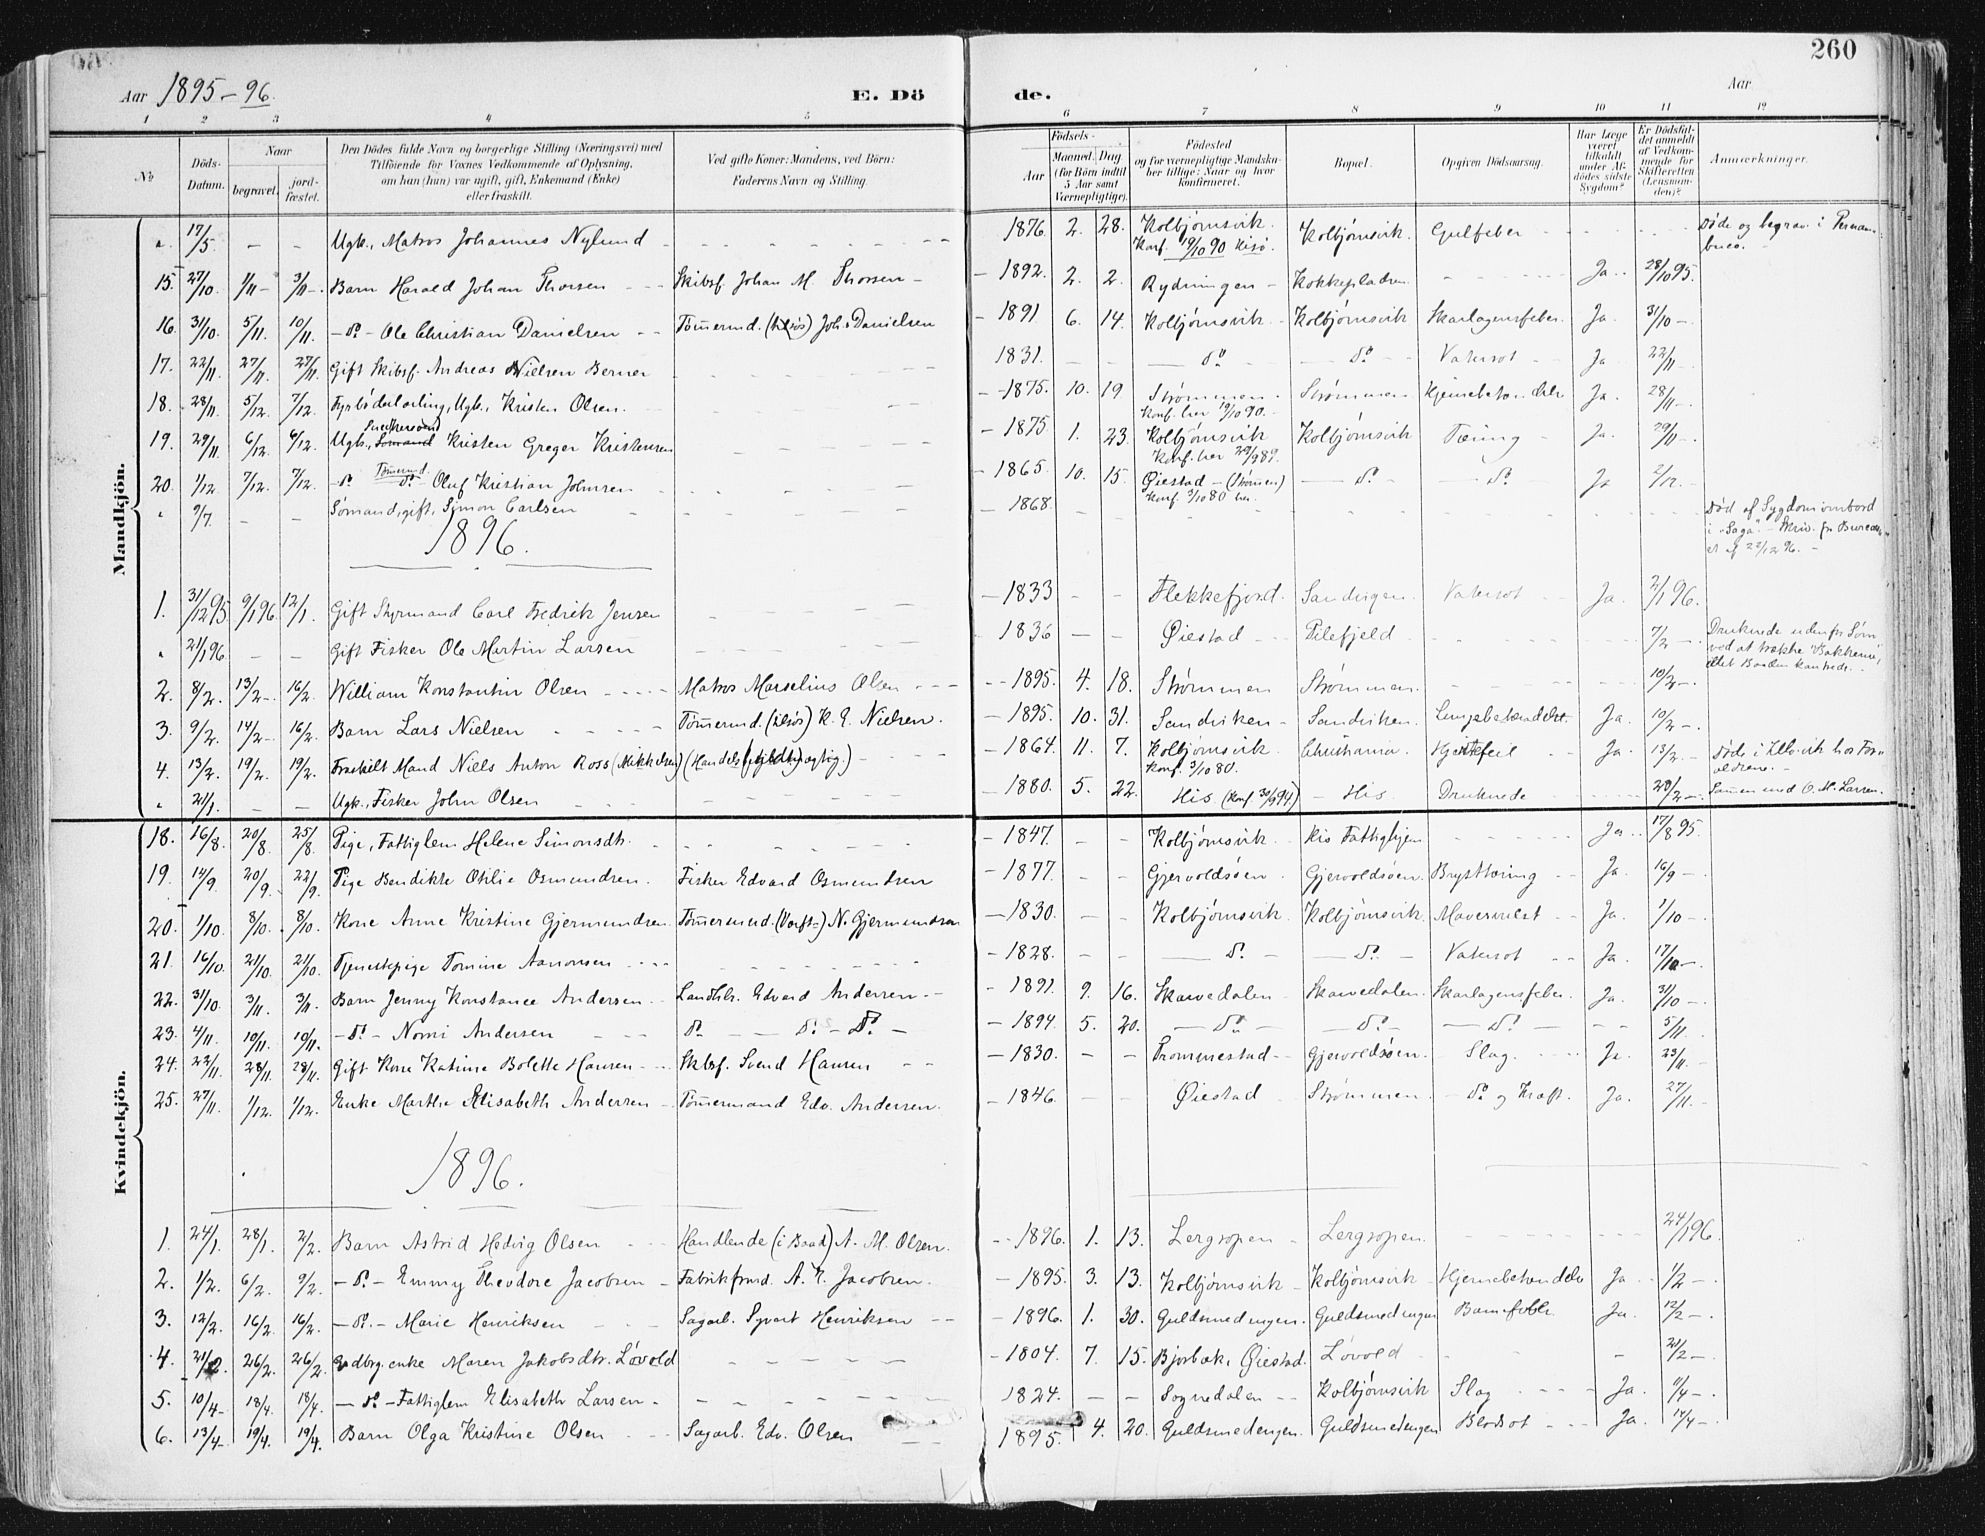 260
Aar 1895-96.
E. Dö de.
Aar
1 2 3 4 5 6 7 8 9 10 11 12
No
Döds-Datum.
Naar
begravet.
jord-fæstet.
Den Dödes fulde Navn og borgerlige Stilling (Næringsvei) med Tilföiende for Voxnes Vedkommende af Oplysning, om han (hun) var ugift, gift, Enkemand (Enke) eller fraskilt.
Ved gifte Koner: Mandens, ved Börn: Faderens Navn og Stilling.
Födsels-
Aar
Maaned. Dag
(for Börn indtil 5 Aar samt Værnepligtige).
Födested og for værnepligtige Mandskaber tillige: Naar og hvor konfirmeret.
Bopæl.
Opgiven Dödsaarsag.
Har Læge været tilkaldt under Afdödes sidste Sygdom?
Er Dödsfaldet anmeldt af Vedkommende for Skifteretten (Lensmanden)?
Anmærkninger.
Mandkjön.
17/5 - - Ugk., Matros Johannes Nylund - 1876. 2. 28. Kolbjørnsvik. Konf. 19/10 90 Hisø. Kolbjørnsvik. Gulfeber - Døde og begrav. i Pernambuco. -
15. 27/10. 1/11 - 3/11 -. Barn Harald Johan Thorsen - Skibsf. Johan M. Thorsen - 1892. 2. 2. Rydningen - Kokkepladsen. - Ja. 28/10 95.
16. 31/10. 5/11. 10/11. - do - Ole Christian Danielsen - Tømmermd. (tilsøs) Johs Danielsen - 1891. 6. 14. Kolbjørnsvik - Kolbjørnsvik Skarlagensfeber. Ja. 31/10 -.
17. 22/11. 27/11. 27/11. Gift Skibsf. Andreas Nielsen Berner - 1831. - - do - do - Vatersot - Ja 22/11 -.
18. 28/11. 5/12. 7/12. Fyrbøderlærling, Ugk., Kristen Olsen. - 1875. 10. 19 Strømmen. Konf. her 19/10 90. - Strømmen Hjernebetændelse Ja. 28/11 -.
19. 29/11. 6/12. 6/12. Ugk., Kristen Greger Kristensen - 1875. 1. 23. Kolbjørnsvik Konf. her 29/9 89. Kolbjørnsvik Tæring - Ja. 29/11 -.
20. 1/12 7/12. 7/12. - do Tømmermd. do Oluf Kristian Johnsen - 1865. 10. 15. Øiestad - (Strømmen) Konf. 3/10 80 her. - do - do. Ja 2/12. -
9/7. - - Sømand, gift, Simon Carlsen - 1868. Død af Sygdom ombord i "Saga".
1896.
1. 31/12 95 9/1 96. 12/1. Gift Styrmand Carl Fredrik Jensen - 1833 - - Flekkefjord. Sandvigen. Vatersot - Ja. 2/1 96.
21/1 96. - - Gift Fisker Ole Martin Larsen - 1836 - - Øiestad - Pilefjeld 7/2 - Druknede udenfor
2. 8/2. 13/2 -. 16/2. William Konstantin Olsen - Matros Marselius Olsen - 1895. 4. 18. Strømmen Strømmen. - 10/2 -.
3. 9/2. 14/2 -. 16/2. Barn Lars Nielsen - Tømmermd. (tilsøs) K. E. Nielsen. - 1895. 10. 31. Sandviken - Sandviken. Lungebetændelse. Ja 10/2 -.
4. 13/2. 19/2. 19/2. Fraskilt Mand Niels Anton Ross (Mikkelsen) (Handels - 1864. 11. 7. Kolbjørnsvik. Konf. 3/10 80. Christiania - Hjertefeil - Ja. 13/2 - Døde i Kolbvik hos Forældrene. -
21/1. - - Ugk., Fisker John Olsen - 1880. 5. 22. His (Konf. 30/9 94.) - His Druknede 20/2 -. Sammen med O. M. Larsen.
Kvindekjön.
18. 16/8. 20/8. 25/8. Pige, Fattiglem Helene Simonsdtr. - 1847. - - Kolbjørnsvik. His Fattighjem - Ja. 17/8 95.
19. 14/9. 20/9. 22/9. Pige Bendikte Othilie Osmundsen. Fisker Edvard Osmundsen - 1877. - - Gjervoldsøen. Gjervoldsøen. Brysttæring - Ja. 16/9 -.
20. 1/10. 8/10. 8/10. Kone Anne Kristine Gjermundsen. Tømmermd. (Værft-) N. Gjermundsen - 1830. - - Kolbjørnsvik. Kolbjørnsvik. Maveonilst - Ja. 1/10 -.
21. 16/10. 21/10. 21/10. Tjenestepige Tomine Aanonsen - 1828. - - do. - do. Vatersot - Ja. 17/10 -.
22. 31/10. 3/11. 3/11. Barn Jenny Konstance Andersen - Landhlr. Edvard Andersen - 1891. 9. 16. Skarvedalen - Skarvedalen. Skarlagensfeber. Ja. 31/10 -.
23. 4/11. 10/11. 10/11. - do - Nomi Andersen do. - do. - do. - 1894. 5. 20. - do - do. - do. - 5/11.
24. 22/11. 28/11. 28/11. Gift Kone Katrine Bolette Hansen - Skbsf. Svend Hansen - 1830. - - Trommestad - Gjervoldsøen. - Slag. Ja. 23/11. -
25. 27/11. 1/12. 1/12. Enke Marthe Elisabeth Andersen - Tømmermand Edv. Andersen. - 1846. - - Øiestad - Strømmen. - do og Kræft. Ja. 27/11. -
1896.
1. 24/1. 28/1. 2/2. Barn Astrid Hedvig Olsen - Handlende (i Baad) A. M. Olsen. - 1896. 1. 13. Lergropen - Lergropen. - 24/1 96.
2. 1/2. 6/2. 9/2. - do - Emmy Theodore Jacobsen - Fabrikfmd. A. E. Jacobsen. - 1895. 3. 13. Kolbjørnsvik - Kolbjørnsvik Hjernebetændelse Ja - 1/2 -.
3. 12/2. 16/2. 16/2. - do. - Marie Henriksen - Sagarb. Syvert Henriksen - 1896. 1. 30. Guldsmedengen. Guldsmedengen Ja. 12/2 -.
4. 21/2. 26/2. 26/2. Gdbrg. enke Maren Jakobsdtr. Løvold - 1804. 7. 15. Bjorbæk, Øiestad. Løvold - 21/2 -.
5. 10/4 -. 18/4. 18/4. - do - Fattiglem Elisabeth Larsen - 1824. - - Sognedalen - Kolbjørnsvik Slag - Ja. 11/4 -.
6. 13/4 -. 19/4. 19/4. Barn Olga Kristine Olsen - Sagarb. Edv. Olsen - 1895. 4. 20. Guldsmedengen. Guldsmedengen Blodsot - Ja. 14/4 -.